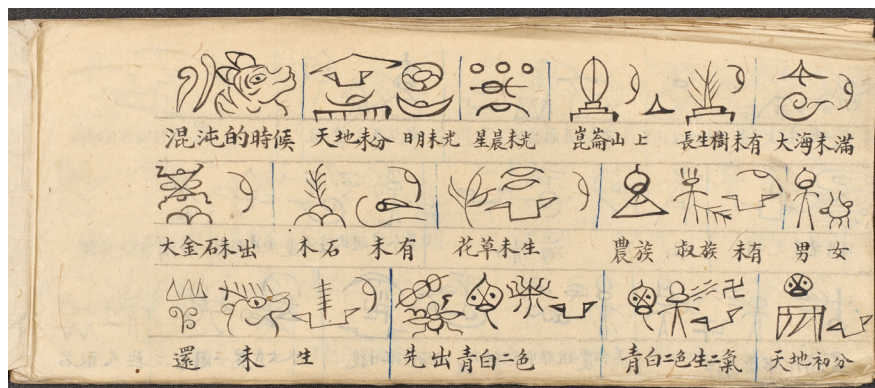 混沌的時候 天地未分 日月未光 星晨未光 崑崙山上 長生樹未有 大海未滿
大金石未出 木石未有 花草未生 農族 叔族 未有 男女
還未生 先出青白二色 青白二色生二氣 天地初分